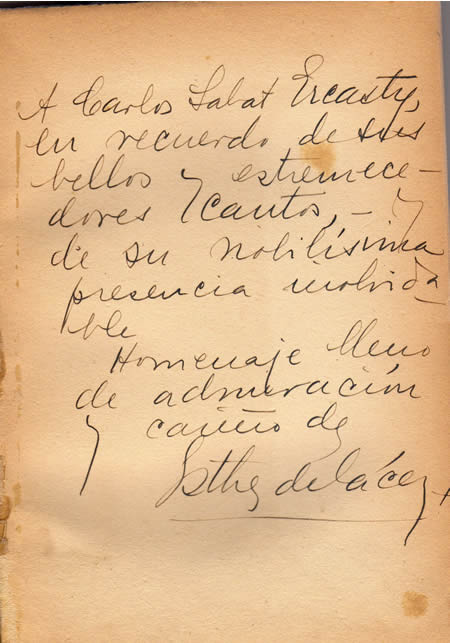 A Carlos Sabat Ercasty,
en recuerdo de sus
bellos y estremece-
dores cantos, – y
de su nobilísima
presencia inolvida-
ble
Homenaje lleno
de admiración
y cariño de
Esther de Cáceres